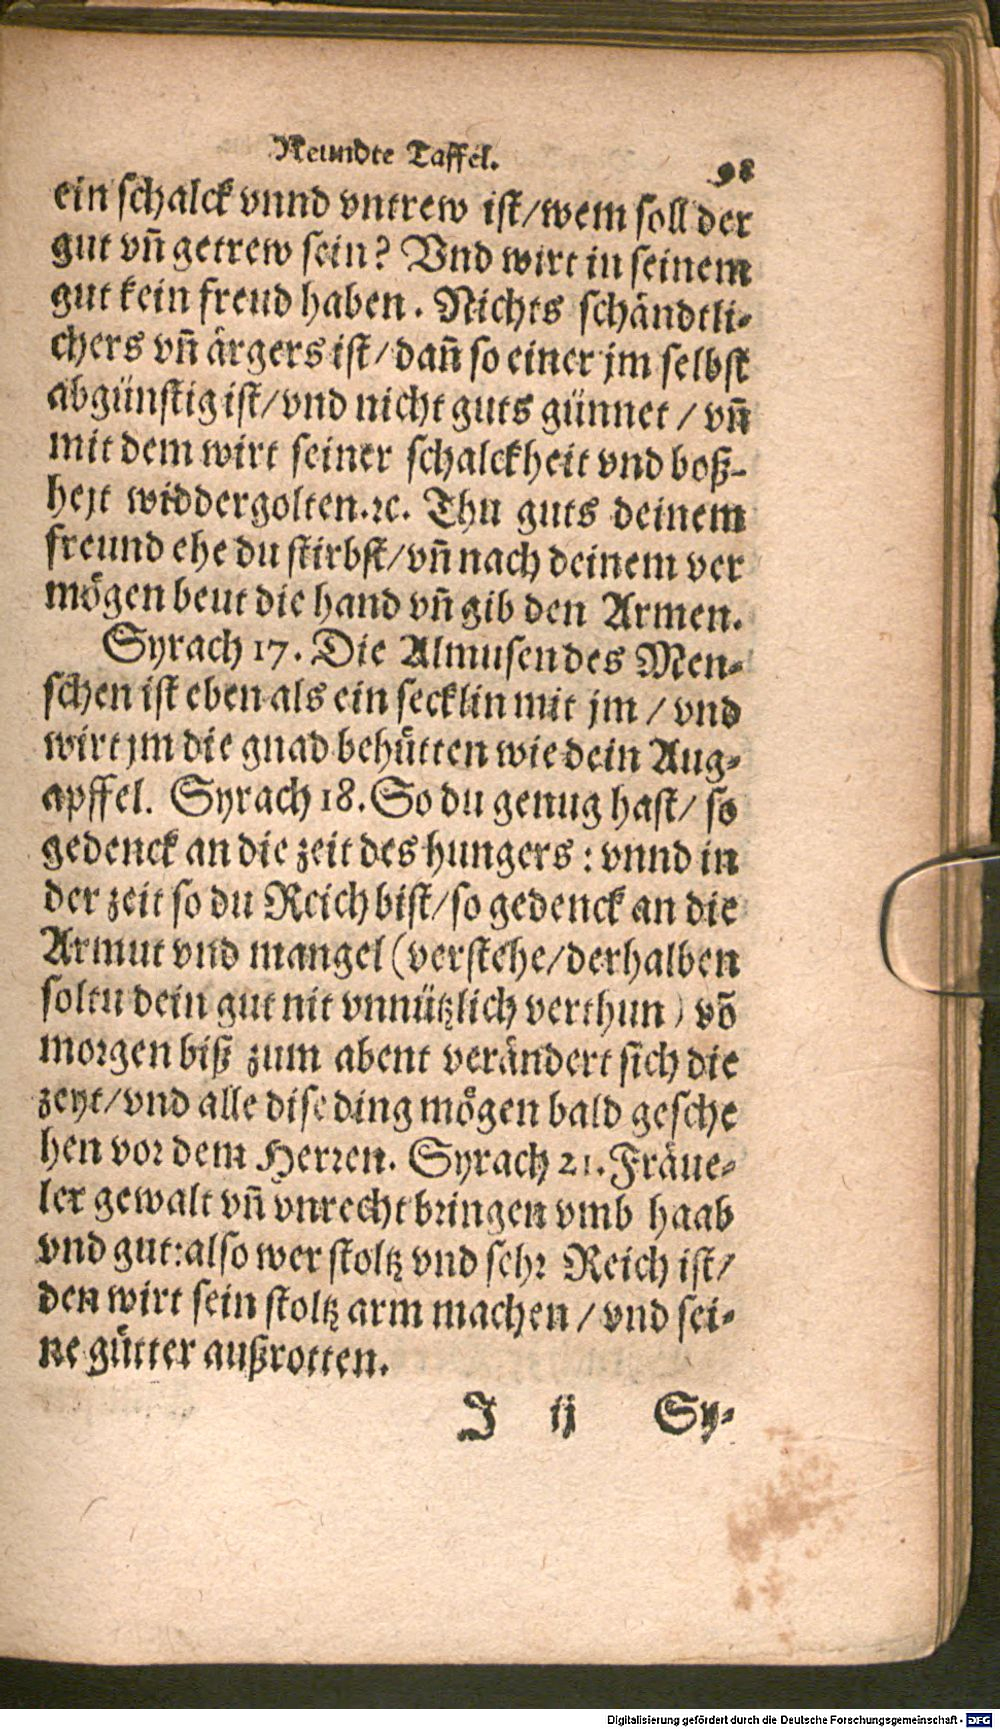 Neundte Taffel.
98
ein schalck vnnd vntrew ist/wem soll der
gut vñ getrew sein? Vnd wirt in seinem
gut kein freud haben. Nichts schändtli-
chers vñ ärgers ist/dañ so einer jm selbst
abgünstig ist/vnd nicht guts günnet / vñ
mit dem wirt seiner schalckheit vnd boß-
heyt widdergolten.ꝛc. Thu guts deinem
freund ehe du stirbst/vñ nach deinem ver
mögen beut die hand vñ gib den Armen.
Syrach 17. Die Almusen des Men-
schen ist eben als ein secklin mit jm / vnd
wirt jm die gnad behütten wie dein Aug-
apffel. Syrach 18. So du genug hast/ so
gedenck an die zeit des hungers : vnnd in
der zeit so du Reich bist/so gedenck an die
Armut vnd mangel (verstehe/derhalben
soltu dein gut nit vnnützlich verthun) võ
morgen biß zum abent verändert sich die
zeyt/vnd alle dise ding mögen bald gesche
hen vor dem Herren. Syrach 21. Fräue-
ler gewalt vñ vnrecht bringen vmb haab
vnd gut:also wer stoltz vnd sehr Reich ist/
den wirt sein stoltz arm machen / vnd sei-
ne gütter außrotten.
J ij Sy-
Digitalisierung gefördert durch die Deutsche Forschungsgemeinschaft - DFG